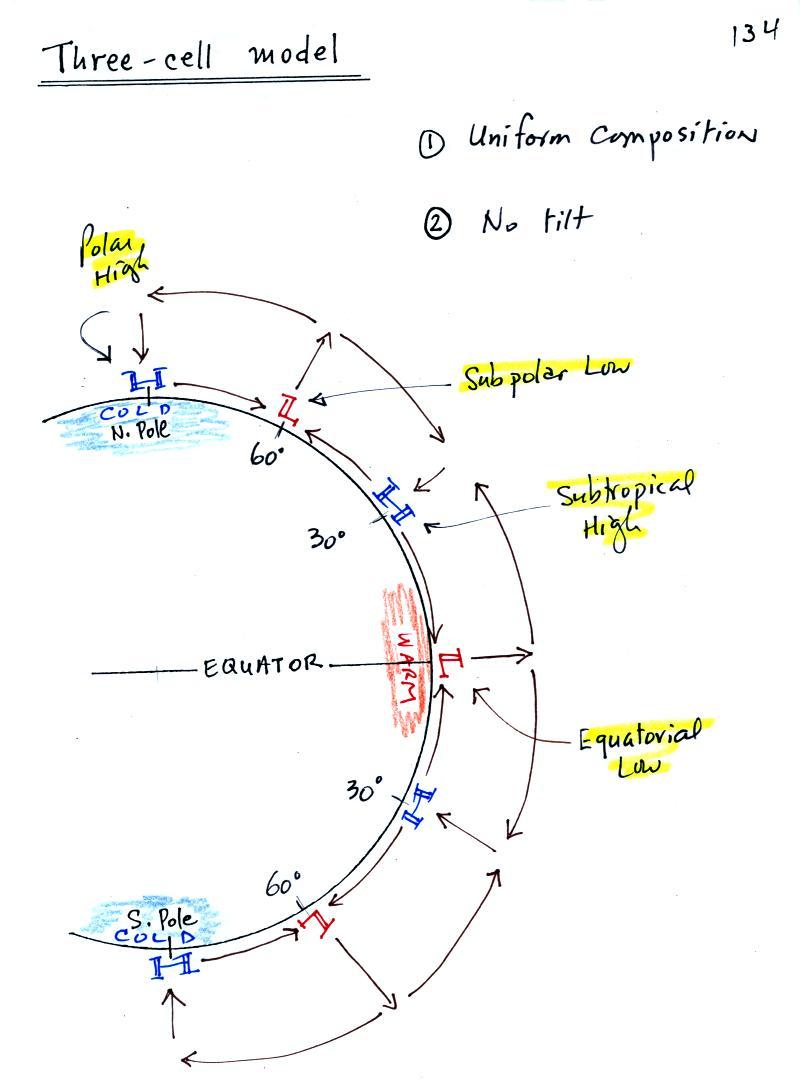 134
Three-cell model
① Uniform Composition
② No tilt
Polar
High
H
COLD
N. Pole
L
Subpolar Low
60°
H
Subtropical
High
30°
WARM
EQUATOR
L
Equatorial
Low
30°
H
60°
L
S. Pole
COLD
H